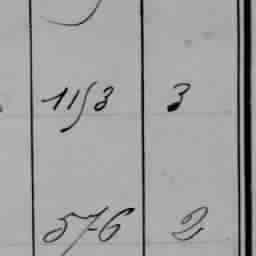 1153 3
576 2